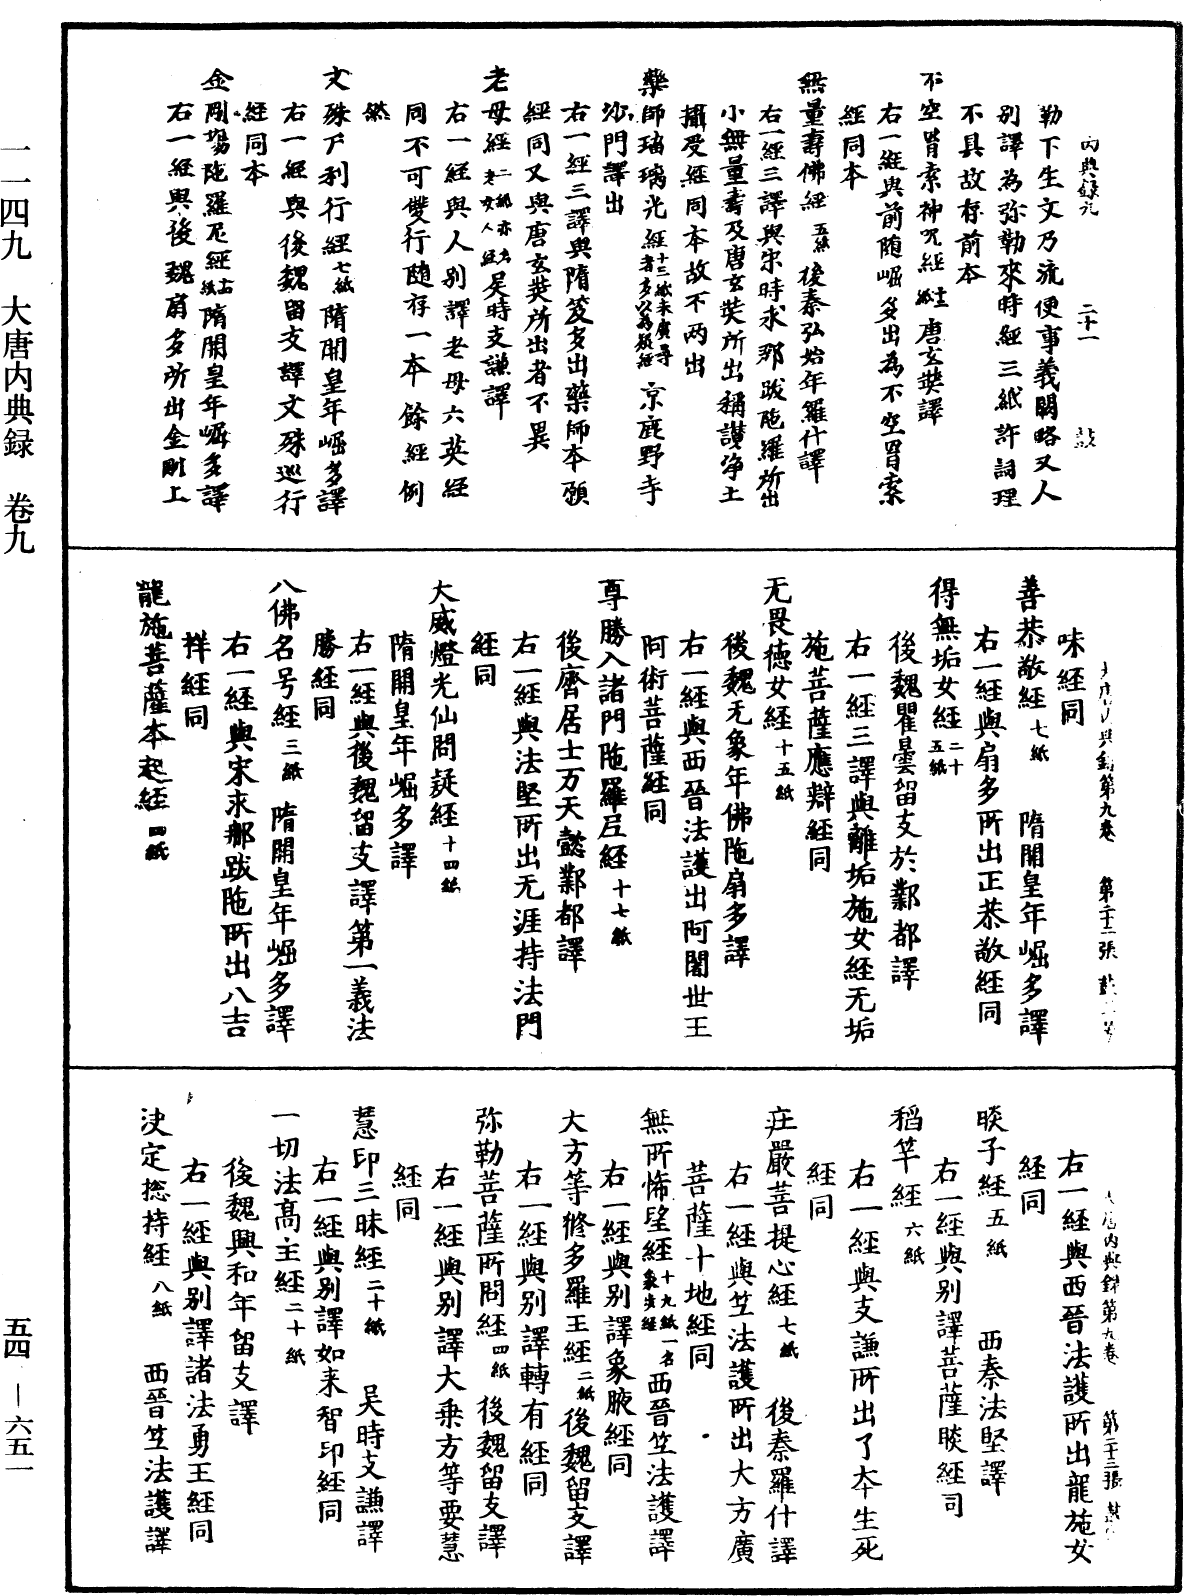 一一四九　大唐内典録　卷九
五四－六五一
内典録九　二十一　鼓
勒下生文乃流便事義闊略又人
别譯為弥勒來時經三紙許詞理
不具故存前本
不空罥索神呪經十五紙唐玄奘譯
右一經與前随崛多出為不空罥索
經同本
無量壽佛經五紙後秦弘始年羅什譯
右一經三譯與宋時求那跋陁羅所出
小無量壽及唐玄奘所出稱讃淨土
攝受經同本故不兩出
藥師瑠璃光經十三紙未廣尋者多以為疑經京鹿野寺
沙門譯出
右一經三譯與隋笈多出藥師本願
經同又與唐玄奘所出者不異
老母經二紙亦名老女人經吴時支謙譯
右一經與人别譯老母六英經
同不可雙行隨存一本餘經例
然
文殊尸利行經七紙隋開皇年崛多譯
右一經與後魏留支譯文殊巡行
經同本
金剛塲陁羅尼經十六紙隋開皇年崛多譯
右一經與後魏扇多所出金剛上
味經同
大唐内典録第九卷　第二十二張　鼓
善恭敬經七紙　隋開皇年崛多譯
右一經與扇多所出正恭敬經同
得無垢女經二十五紙
後魏瞿曇留支於鄴都譯
右一經三譯與離垢施女經无垢
施菩薩應辯經同
无畏德女經十五紙
後魏无象年佛陁扇多譯
右一經與西晉法護出阿闍世王
阿術菩薩經同
尊勝入諸門陁羅尼經十七紙
後齊居士万天懿鄴都譯
右一經與法堅所出无涯持法門
經同
大威燈光仙問疑經十四紙
隋開皇年崛多譯
右一經與後魏留支譯第一義法
勝經同
八佛名号經三紙　隋開皇年崛多譯
右一經與宋求那跋陁所出八吉
祥經同
龍施菩薩本起經四紙
右一經與西晉法護所出龍施女
經同
大唐内典録第九卷　第二十三張　鼓
睒子經五紙　西秦法堅譯
右一經與别譯菩薩睒經同
稻芉經六紙
右一經與支謙所出了夲生死
經同
莊嚴菩提心經七紙　後秦羅什譯
右一經與竺法護所出大方廣
菩薩十地經同
無所悕望經十九紙一名象步經西晉竺法護譯
右一經與别譯象腋經同
大方等修多羅王經二紙後魏留支譯
右一經與别譯轉有經同
弥勒菩薩所問經四紙　後魏留支譯
右一經與别譯大乗方等要慧
經同
慧印三昧經二十紙　吴時支謙譯
右一經與别譯如来智印經同
一切法髙主經二十紙
後魏興和年留支譯
右一經與别譯諸法勇王經同
决定捴持經八紙　西晉竺法護譯